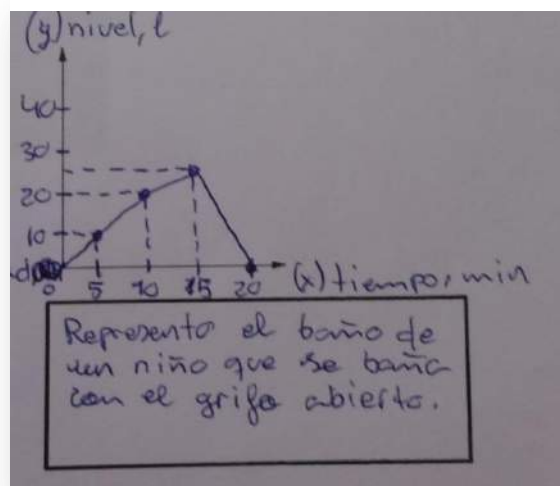 (y) nivel, l
40
30
20
10
0 5 10 15 20 (x) tiempo, min
Represento el baño de
un niño que se baña
con el grifo abierto.